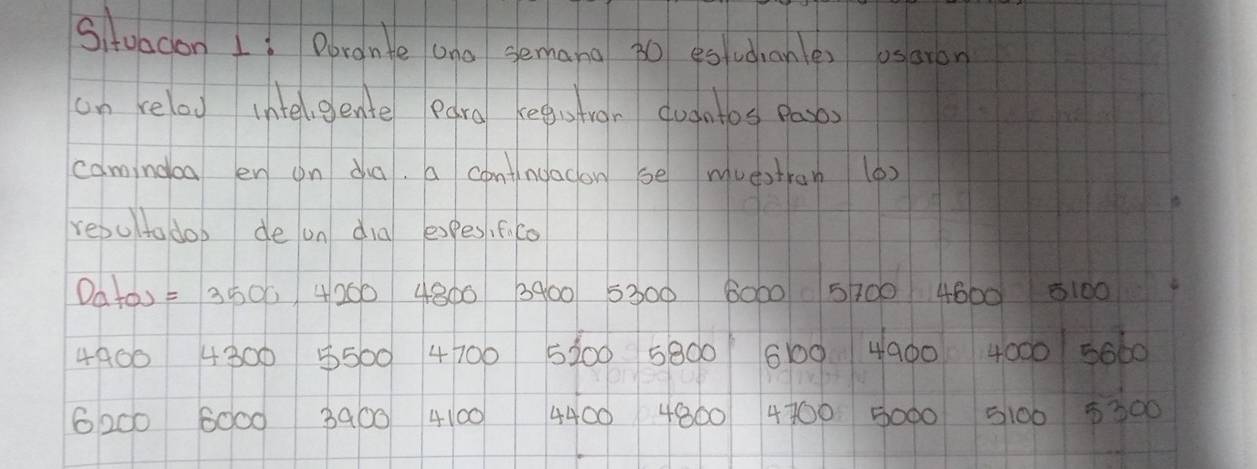 Situacion 1: Durante una semana 30 estudiantes usaron
un reloj inteligente Para registrar cuantos Pasos
camindoa en un dia. a continuacion se muestran los
resultados de un dia espesifico
Datos = 3500, 4200 4800 3900 5300 6000 5700 4600 5100
4900 4300 5500 4700 5200 5800 6100 4900 4000 5600
6200 6000 3900 4100 4400 4800 4700 5000 5100 5300